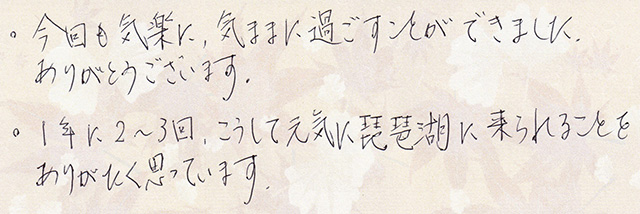 。今回も気楽に,気ままに過ごすことができました.
ありがとうございます.
。1年に2〜3回,こうして元気に琵琶湖に来られることを
ありがたく思っています.